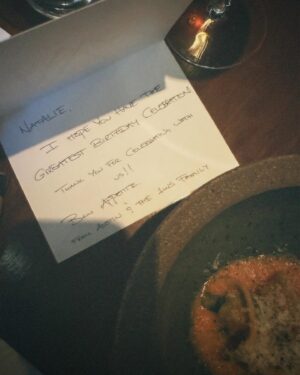 NATALIE,
I HOPE YOU HAVE THE
GREATEST BIRTHDAY CELEBRATION
THANK YOU FOR CELEBRATING WITH
US!!
BON APPETIT
FROM & THE FAMILY